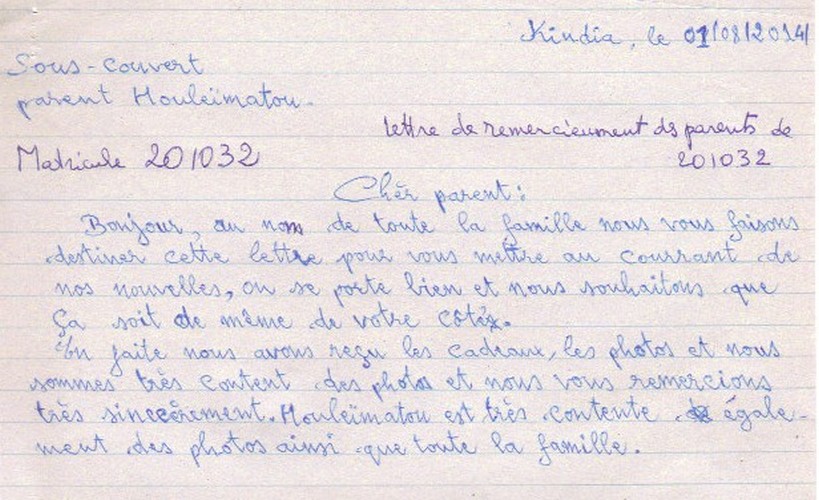 Kindia, le 01/08/2014
Sous-couvert
parent Houleïmatou.
lettre de remercieument ds parents de
Matricule 201032
201032
Chèr parent:
Bonjour, au nom de toute la famille nous vous faisons
destiner cette lettre pour vous mettre au courrant de
nos nouvelles, on se porte bien et nous souhaitons que
ça soit de même de votre côté.
En faite nous avons reçu les cadeaux, les photos et nous
sommes très content des photos et nous vous remercions
très sincèrement. Houleïmatou est très contente égale-
ment des photos ainsi que toute la famille.